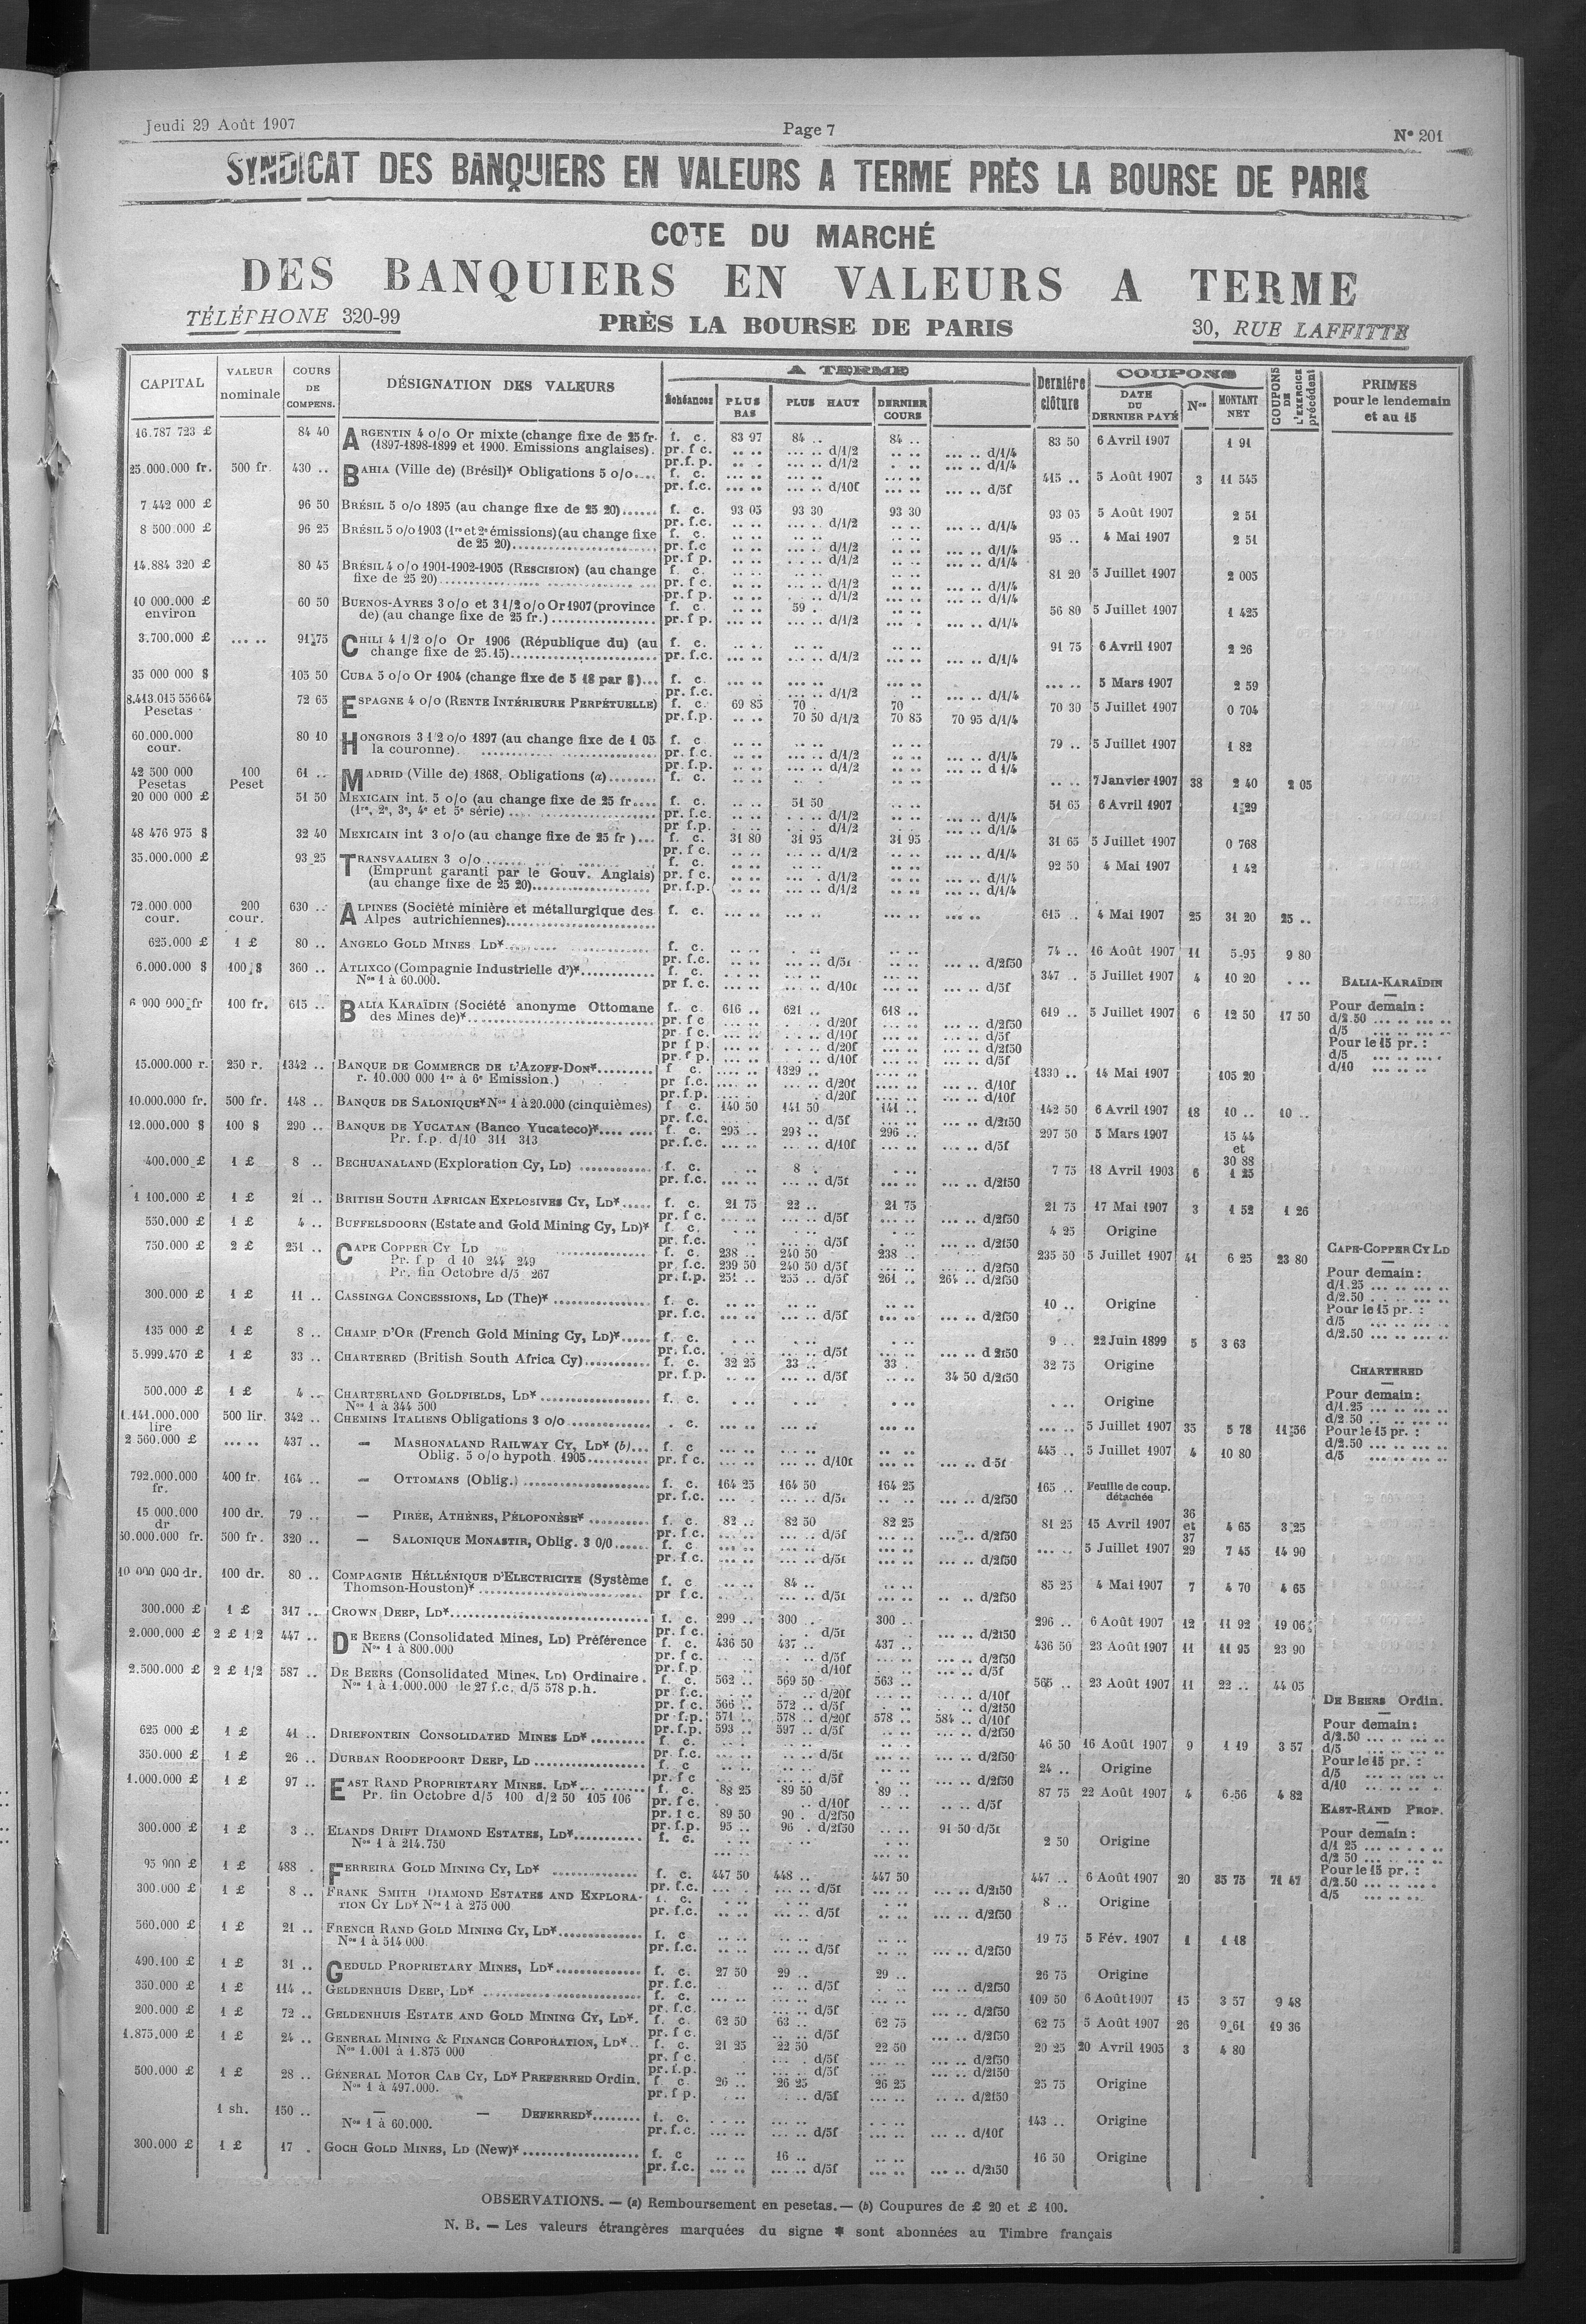 Jeudi 29 Août 1907
Page 7
N° 201
SYNDICAT DES BANQUIERS EN VALEURS A TERME PRÈS LA BOURSE DE PARIS
COTE DU MARCHÉ
DES BANQUIERS EN VALEURS A TERME
TÉLÉPHONE 320-99
PRÈS LA BOURSE DE PARIS
30, RUE LAFFITTE
CAPITAL VALEUR nominale COURS DE COMPENS. DÉSIGNATION DES VALEURS A TERME Échéances PLUS BAS PLUS HAUT DERNIER COURS Dernière clôture COUPONS DATE DU DERNIER PAYÉ Nos MONTANT NET COUPONS DE L'EXERCICE précédent PRIMES pour le lendemain et au 15
16.787 723 £ 84 40 ARGENTIN 4 o/o Or mixte (change fixe de 25 fr. f. c. 83 97 84 .. 84 .. 83 50 6 Avril 1907 1 91
(1897-1898-1899 et 1900. Emissions anglaises). pr. f c. .. .. ... .. d/1/2 .. .. ... .. d/1/4
25.000.000 fr. 500 fr. 430 .. BAHIA (Ville de) (Brésil)* Obligations 5 o/o.... f. c. 415 .. 5 Août 1907 3 11 545
pr. f.c. ... .. ... .. d/10f ... .. ... .. d/5f
7 442 000 £ 96 50 BRÉSIL 5 o/o 1895 (au change fixe de 25 20)...... f. c. 93 05 93 30 93 30 93 05 5 Août 1907 2 51
8 500.000 £ 96 25 BRÉSIL 5 o/o 1903 (1re et 2e émissions) (au change fixe f. c. 95 .. 4 Mai 1907 2 51
de 25 20)........ pr. f.c .. .. ... .. d/1/2 .. .. ... .. d/1/4
14.884 320 £ 80 45 BRÉSIL 4 o/o 1901-1902-1905 (RESCISION) (au change f. c. 81 20 5 Juillet 1907 2 005
fixe de 25 20)........ pr. f c. .. .. ... .. d/1/2 .. .. ... .. d/1/4
10 000.000 £ 60 50 BUENOS-AYRES 3 o/o et 3 1/2 o/o Or 1907 (province f. c. .. .. 59 . 56 80 5 Juillet 1907 1 425
environ de) (au change fixe de 25 fr.)........ pr. f p. .. .. ... .. d/1/2 .. .. ... .. d/1/4
3.700.000 £ ... .. 91 75 CHILI 4 1/2 o/o Or 1906 (République du) (au f. c. 91 75 6 Avril 1907 2 26
change fixe de 25.15)........ pr. f.c. ... .. ... .. d/1/2 ... .. ... .. d/1/4
35 000 000 $ 105 50 CUBA 5 o/o Or 1904 (change fixe de 5 18 par $)... f. c. ... .. 5 Mars 1907 2 59
8.413.015 556 64 72 65 ESPAGNE 4 o/o (RENTE INTÉRIEURE PERPÉTUELLE) f. c. 69 85 70 . 70 70 30 5 Juillet 1907 0 704
Pesetas pr. f.p. .. .. 70 50 d/1/2 70 85 70 95 d/1/4
60.000.000 80 10 HONGROIS 3 1/2 o/o 1897 (au change fixe de 1 05 f. c. 79 .. 5 Juillet 1907 1 82
cour. la couronne). ........ pr. f c. .. .. ... .. d/1/2 .. .. ... .. d/1/4
42 500 000 100 61 .. MADRID (Ville de) 1868, Obligations (a)........ f. c. .. .. 7 Janvier 1907 38 2 40 2 05
Pesetas Peset
20 000 000 £ 51 50 MEXICAIN int. 5 o/o (au change fixe de 25 fr.... f. c. .. .. 51 50 .. .. 51 65 6 Avril 1907 1 29
(1re, 2e, 3e, 4e et 5e série)........ pr. f.c. .. .. ... .. d/1/2 ... .. d/1/4
48 476 975 $ 32 40 MEXICAIN int 3 o/o (au change fixe de 25 fr )... f. c. 31 80 31 95 31 95 31 65 5 Juillet 1907 0 768
35.000.000 £ 93 25 TRANSVAALIEN 3 o/o........ f. c. 92 50 4 Mai 1907 1 42
(Emprunt garanti par le Gouv. Anglais) pr. f c. .. .. ... .. d/1/2 .. .. ... .. d/1/4
(au change fixe de 25 20)........ pr. f.p. .. .. ... .. d/1/2 .. .. ... .. d/1/4
72.000.000 200 630 .. ALPINES (Société minière et métallurgique des f. c. ... .. ... .. ... .. ... .. 615 .. 4 Mai 1907 25 31 20 25 ..
cour. cour. Alpes autrichiennes)........
625.000 £ 1 £ 80 .. ANGELO GOLD MINES LD*........ f. c. 74 .. 16 Août 1907 11 5 95 9 80
6.000.000 $ 100 $ 360 .. ATLIXCO (Compagnie Industrielle d')*........ f. c. 347 .. 5 Juillet 1907 4 10 20 . ..
Nos 1 à 60.000. pr f.c. ... .. ... .. d/10f ... .. ... .. d/5f
6 000 000 fr 100 fr. 615 .. BALIA KARAÏDIN (Société anonyme Ottomane f. c. 616 .. 621 .. 618 .. 619 .. 5 Juillet 1907 6 12 50 17 50
des Mines de)*........ pr. f c ... .. . .. d/20f ... .. ... .. d/2f50
BALIA-KARAÏDIN
Pour demain :
d/2.50 ... .. ... ..
d/5 ... .. ... ..
Pour le 15 pr. :
d/5 ... .. ... .
d/10 ... .. .. ..
15.000.000 r. 250 r. 1342 .. BANQUE DE COMMERCE DE L'AZOFF-DON*........ f c. .... .. 1329 .. .... .. 1330 .. 14 Mai 1907 105 20
r. 10.000 000 1re à 6e Emission.) pr f.c. .... .. .... .. d/20f .... .. .... .. d/10f
10.000.000 fr. 500 fr. 148 .. BANQUE DE SALONIQUE* Nos 1 à 20.000 (cinquièmes) f c. 140 50 141 50 141 .. 142 50 6 Avril 1907 18 10 .. 10 ..
12.000.000 $ 100 $ 290 .. BANQUE DE YUCATAN (Banco Yucateco)*........ f. c. 295 .. 298 .. 296 .. 297 50 5 Mars 1907 15 44
Pr. f.p. d/10 311 313 pr. f.c. ... .. ... .. d/10f ... .. ... .. d/5f et 30 88
400.000 £ 1 £ 8 .. BECHUANALAND (Exploration Cy, LD)........ f. c. . .. 8 . . .. 7 75 18 Avril 1903 6 1 25
1 100.000 £ 1 £ 21 .. BRITISH SOUTH AFRICAN EXPLOSIVES CY, LD*..... f. c. 21 75 22 .. 21 75 21 75 17 Mai 1907 3 1 52 1 26
550.000 £ 1 £ 4 .. BUFFELSDOORN (Estate and Gold Mining Cy, LD)* f. c. 4 25 Origine
750.000 £ 2 £ 251 .. CAPE COPPER CY LD ........ f. c. 238 .. 240 50 238 .. 235 50 5 Juillet 1907 41 6 25 23 80
Pr. f p d 10 244 249 pr. f.c. 239 50 240 50 d/5f ... .. ... .. d/2f50
Pr. fin Octobre d/5 267 pr. f.p. 251 .. 255 .. d/5f 261 .. 264 .. d/2f50
CAPE-COPPER CY LD
Pour demain :
d/1.25 ... .. ... ..
d/2.50 . .. ... ..
Pour le 15 pr. :
d/5 ... .. ... ..
d/2.50 ... .. ... ..
300.000 £ 1 £ 11 .. CASSINGA CONCESSIONS, LD (The)*........ f. c. 10 .. Origine
135 000 £ 1 £ 8 .. CHAMP D'OR (French Gold Mining Cy, LD)*..... f. c. 9 .. 22 Juin 1899 5 3 63
5.999.470 £ 1 £ 33 .. CHARTERED (British South Africa Cy)........ f. c. 32 25 33 .. 33 . 32 75 Origine
pr. f.p. .. .. ... .. d/5f .. .. 34 50 d/2f50
CHARTERED
Pour demain :
d/1.25 ... .. ... ..
d/2 50 .. .. ... ..
Pour le 15 pr. :
d/2.50 ... .. ... ..
d/5 ... .. ... ..
500.000 £ 1 £ 4 .. CHARTERLAND GOLDFIELDS, LD*........ f. c. . .. Origine
Nos 1 à 344 500
1.141.000.000 500 lir. 342 .. CHEMINS ITALIENS Obligations 3 o/o........ . c. ... .. 5 Juillet 1907 35 5 78 11 56
lire
2 560.000 £ ... .. 437 .. — MASHONALAND RAILWAY CY, LD* (b)... f. c 445 .. 5 Juillet 1907 4 10 80
Oblig. 5 o/o hypoth. 1905........ pr. f c. ... .. ... .. d/10f ... .. ... .. d 5f
792.000.000 400 fr. 164 .. — OTTOMANS (Oblig.)........ f. c. 164 25 164 50 164 25 165 .. Feuille de coup. détachée
fr.
15 000.000 100 dr. 79 .. — PIRÉE, ATHÈNES, PÉLOPONÈSE*........ f. c. 82 .. 82 50 82 25 81 25 15 Avril 1907 36 et 37 4 65 3 25
dr
500 fr. 320 .. — SALONIQUE MONASTIR, Oblig. 3 0/0...... f. c. ... .. 5 Juillet 1907 29 7 45 14 90
10 000 000 dr. 100 dr. 80 .. COMPAGNIE HÉLLÉNIQUE D'ELECTRICITE (Système f. c ... .. 84 .. 85 25 4 Mai 1907 7 4 70 4 65
Thomson-Houston)*........ pr f.c. ... .. ... .. d/5f .. .. d/2f50
300.000 £ 1 £ 317 .. CROWN DEEP, LD*........ f. c. 299 .. 300 . 300 .. 296 .. 6 Août 1907 12 11 92 19 06
2.000.000 £ 2 £ 1/2 447 .. DE BEERS (Consolidated Mines, LD) Préférence f. c. 436 50 437 .. 437 .. 436 50 23 Août 1907 11 11 95 23 90
Nos 1 à 800.000 pr. f c. .. .. . .. d/5f ... .. ... .. d/2f50
2.500.000 £ 2 £ 1/2 587 .. DE BEERS (Consolidated Mines, LD) Ordinaire . f. c. 562 .. 569 50 563 .. 566 .. 23 Août 1907 11 22 .. 44 05
Nos 1 à 1.000.000 le 27 f.c. d/5 578 p.h. pr f.c. . .. . .. d/20f ... .. d/10f
pr. f c. 566 .. 572 .. d/5f ... .. d/2f50
pr f.p. 571 .. 578 .. d/20f 578 .. 584 .. d/10f
pr. f.p. 593 .. 597 .. d/5f ... .. d/2f50
DE BEERS Ordin.
Pour demain :
d/2.50 ... .. ... ..
d/5 ... .. ... ..
Pour le 15 pr. :
d/5 ... .. ... ..
d/10 ... .. .. ..
625 000 £ 1 £ 41 .. DRIEFONTEIN CONSOLIDATED MINES LD*........ f. c. 46 50 16 Août 1907 9 1 19 3 57
350.000 £ 1 £ 26 .. DURBAN ROODEPOORT DEEP, LD........ f. c 24 .. Origine
1.000.000 £ 1 £ 97 .. EAST RAND PROPRIETARY MINES. LD*........ f. c. 88 25 89 50 89 .. 87 75 22 Août 1907 4 6 56 4 82
Pr. fin Octobre d/5 100 d/2 50 105 106 pr. f c. .. .. d/10f .. .. d/5f
pr. f c. 89 50 90 . d/2f50
pr. f.p. 95 .. 96 . d/2f50 ... .. 91 50 d/5f
EAST-RAND PROP.
Pour demain :
d/1 25 ... .. . .. ..
d/2 50 ... .. ... ..
Pour le 15 pr. :
d/2.50 ... .. ... .
d/5 ... .. ... ..
300.000 £ 1 £ 3 .. ELANDS DRIFT DIAMOND ESTATES, LD*........ f. c. 2 50 Origine
Nos 1 à 214.750
95 000 £ 1 £ 488 . FERREIRA GOLD MINING CY, LD*........ f. c. 447 50 448 .. 447 50 447 .. 6 Août 1907 20 35 75 71 47
300.000 £ 1 £ 8 .. FRANK SMITH DIAMOND ESTATES AND EXPLORA- f. c. 8 .. Origine
TION CY LD* Nos 1 à 275 000 pr. f.c. .. .. ... .. d/5f .. .. ... .. d/2f50
560.000 £ 1 £ 21 .. FRENCH RAND GOLD MINING CY, LD*........ f. c 19 75 5 Fév. 1907 1 1 18
Nos 1 à 514 000. pr. f.c. .. .. ... .. d/5f .. .. ... .. d/2f50
490.100 £ 1 £ 31 .. GEDULD PROPRIETARY MINES, LD*........ f. c. 27 50 29 .. 29 .. 26 75 Origine
350.000 £ 1 £ 114 .. GELDENHUIS DEEP, LD*........ f. c. 109 50 6 Août 1907 15 3 57 9 48
200.000 £ 1 £ 72 .. GELDENHUIS ESTATE AND GOLD MINING CY, LD*. f. c. 62 50 63 .. 62 75 62 75 5 Août 1907 26 9 61 19 36
1.875.000 £ 1 £ 24 .. GENERAL MINING & FINANCE CORPORATION, LD*.. f. c. 21 25 22 50 22 50 20 25 20 Avril 1905 3 4 80
Nos 1.001 à 1.875 000 pr. f c. .. .. ... .. d/5f ... .. ... .. d/2f50
500.000 £ 1 £ 28 .. GENERAL MOTOR CAB CY, LD* PREFERRED Ordin. f. c 26 .. 26 25 26 25 25 75 Origine
Nos 1 à 497.000. pr. f p. .. .. . .. d/5f ... .. .. .. d/2f50
1 sh. 150 .. — — DEFERRED*........ f. c. 143 .. Origine
Nos 1 à 60.000. pr. f.c. ... .. ... .. d/5f ... .. ... .. d/10f
300.000 £ 1 £ 17 . GOCH GOLD MINES, LD (New)*........ f. c .. .. 16 .. .. .. 16 50 Origine
pr. f.c. ... .. ... .. d/5f ... .. ... .. d/2f50
OBSERVATIONS. — (a) Remboursement en pesetas. — (b) Coupures de £ 20 et £ 100.
N. B. — Les valeurs étrangères marquées du signe * sont abonnées au Timbre français